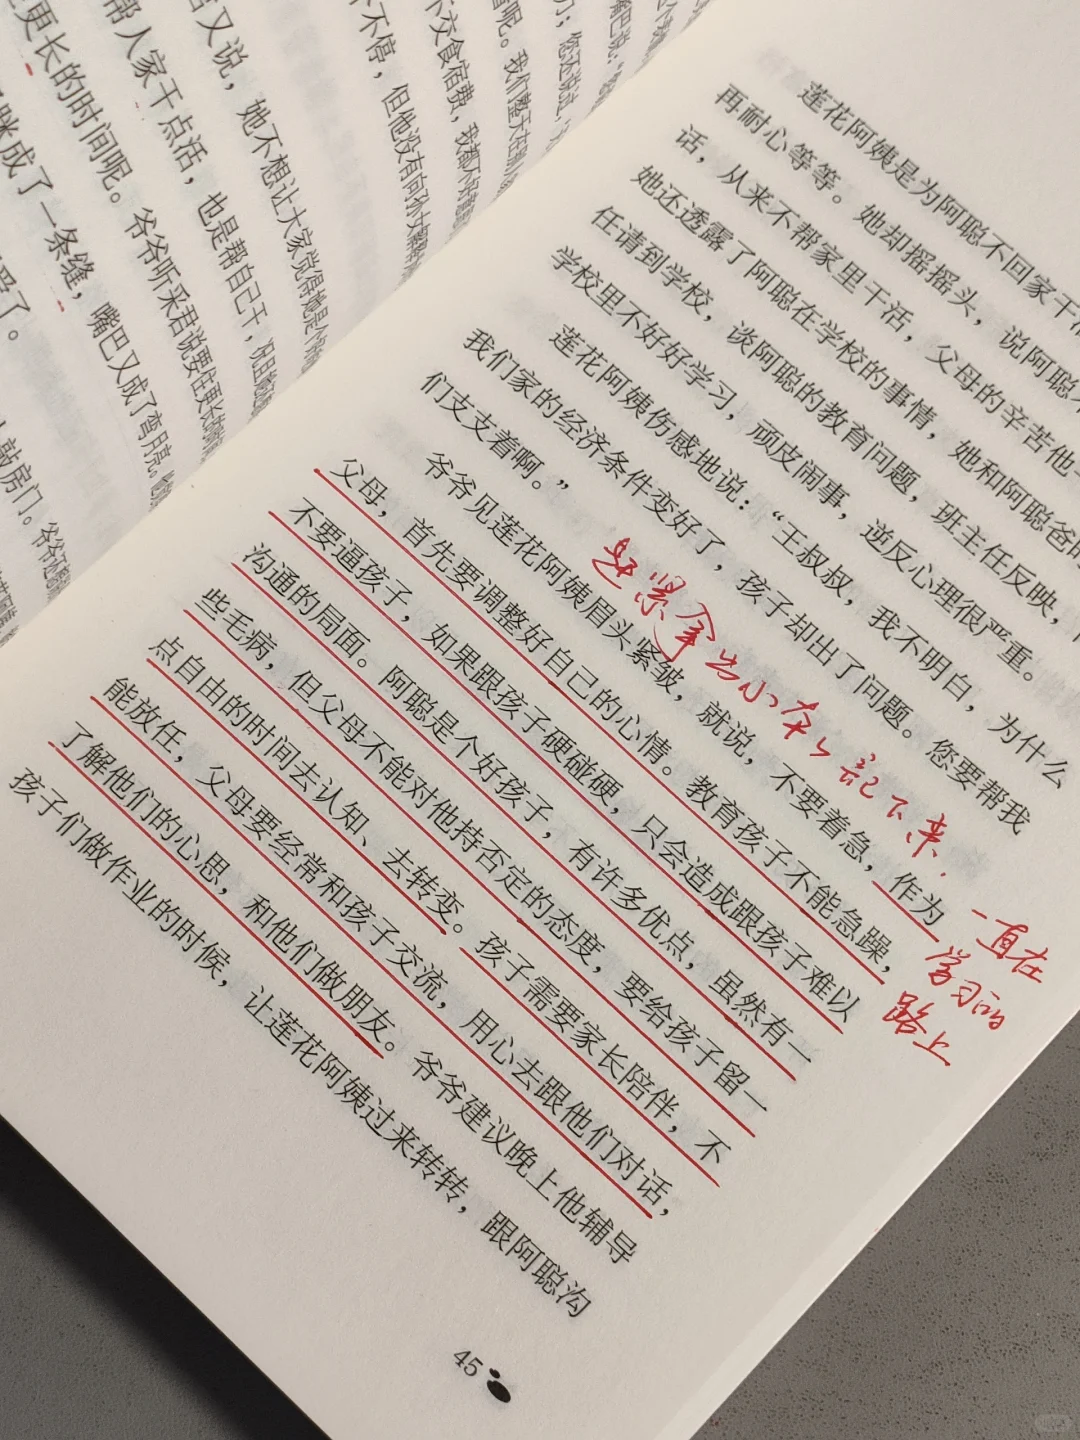 更长的时间呢。爷爷听采君说要住更长
眯成了一条缝，嘴巴又成了弯月亮。
敲房门。爷爷
帮人家干点活，也是帮自己干，
又说，她不想让大家觉得她是个
不停，但他没有向
不交食宿费，我都
呢。我们整天在
莲花阿姨是为阿聪不回家干
再耐心等等。她却摇摇头，说阿聪
话，从来不帮家里干活，父母的辛苦他
她还透露了阿聪在学校的事情，她和阿聪爸
任请到学校，谈阿聪的教育问题，班主任反映，
学校里不好好学习，顽皮闹事，逆反心理很严重。
莲花阿姨伤感地说：“王叔叔，我不明白，为什么
我们家的经济条件变好了，孩子却出了问题。您要帮我
们支支着啊。”
爷爷见莲花阿姨眉头紧皱，就说，不要着急，作为
父母，首先要调整好自己的心情。教育孩子不能急躁，
不要逼孩子，如果跟孩子硬碰硬，只会造成跟孩子难以
沟通的局面。阿聪是个好孩子，有许多优点，虽然有一
些毛病，但父母不能对他持否定的态度，要给孩子留一
点自由的时间去认知、去转变。孩子需要家长陪伴，不
能放任，父母要经常和孩子交流，用心去跟他们对话，
了解他们的心思，和他们做朋友。爷爷建议晚上他辅导
孩子们做作业的时候，让莲花阿姨过来转转，跟阿聪沟
赶紧拿出小本本记下来.
一直在
学习的
路上
45